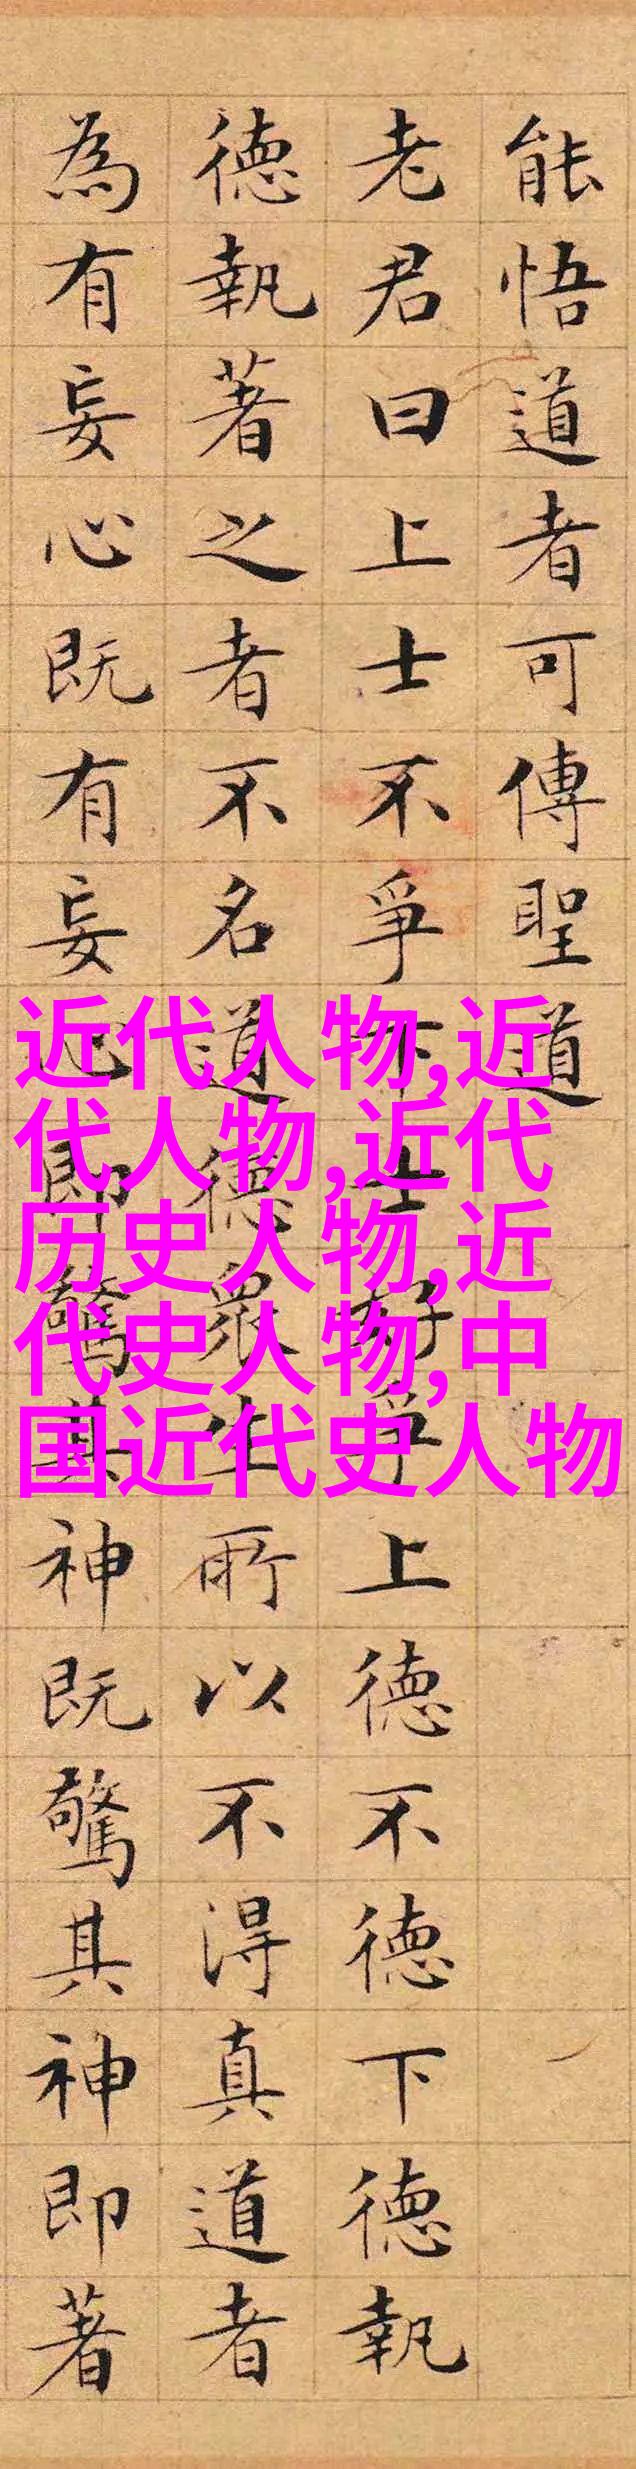 能悟道者可傳聖道
老君曰上士不爭下士好爭上德不德下德執
德執著之者不名道德眾生所以不得真道者
為有妄心既有妄心即驚其神既驚其神即著
近代人物,近
代人物,近代
历史人物,近
代史人物,中
国近代史人物